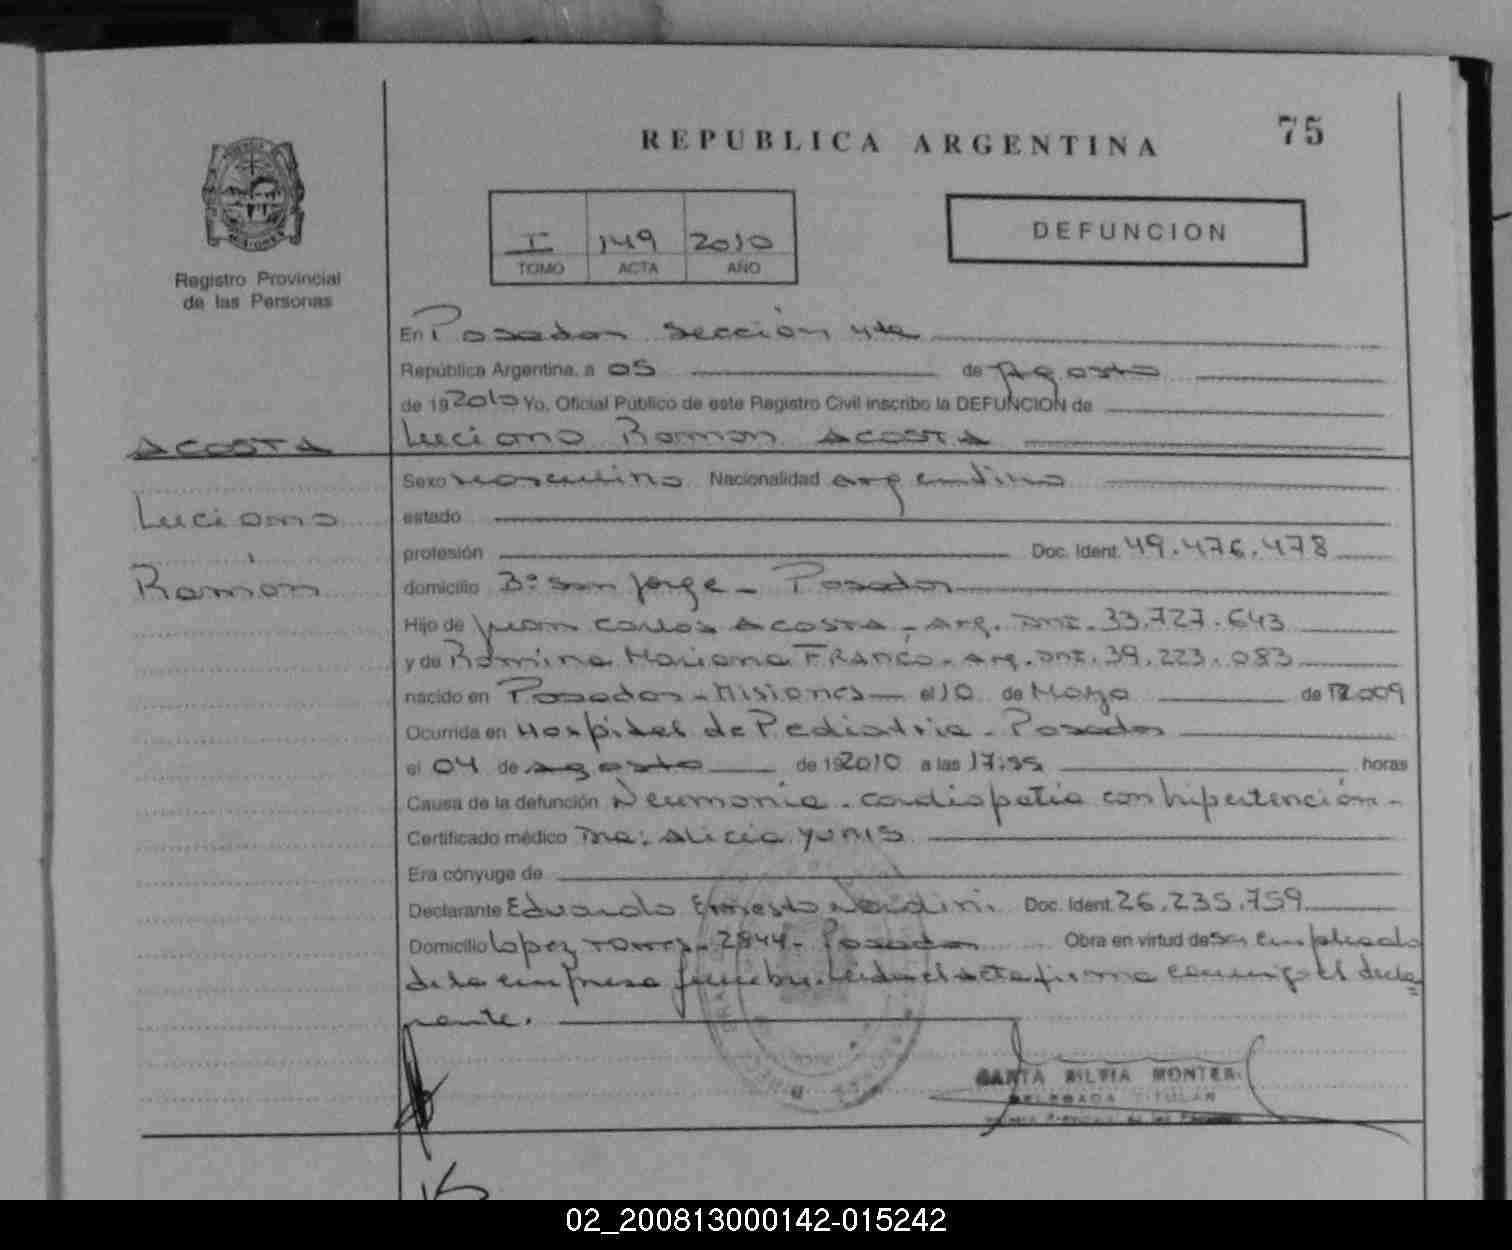 REPUBLICA ARGENTINA
75
I 149 2010
TOMO ACTA AÑO
DEFUNCION
MISIONES
Registro Provincial
de las Personas
En Posadas sección 4ta
República Argentina, a 05 de Agosto
de 192010 Yo, Oficial Público de este Registro Civil inscribo la DEFUNCION de
ACOSTA
Luciano Ramon ACOSTA
Luciano
Ramón
Sexo masculino Nacionalidad argentino
estado
profesión Doc. Ident. 49.476.478
domicilio Bº San Jorge - Posadas
Hijo de Juan Carlos ACOSTA - Arg. DNI. 33.727.643
y de Romina Mariana FRANCO - Arg. DNI. 39.223.083
nacido en Posadas - Misiones - el 10 de Mayo de 2009
Ocurrida en Hospital de Pediatria - Posadas
el 04 de agosto de 192010 a las 17:35 horas
Causa de la defunción Neumonia - cardiopatia con hipertención -
Certificado médico Dra: Alicia Yunis
Era cónyuge de
Declarante Eduardo Ernesto Nardini Doc. Ident. 26.235.759
Domicilio Lopez Torres - 2844 - Posadas Obra en virtud de ser empleado
de la empresa funebre. Leida el acta firma conmigo el decla=
rante.
SILVIA MONTER
DELEGADA TITULAR
02_200813000142-015242